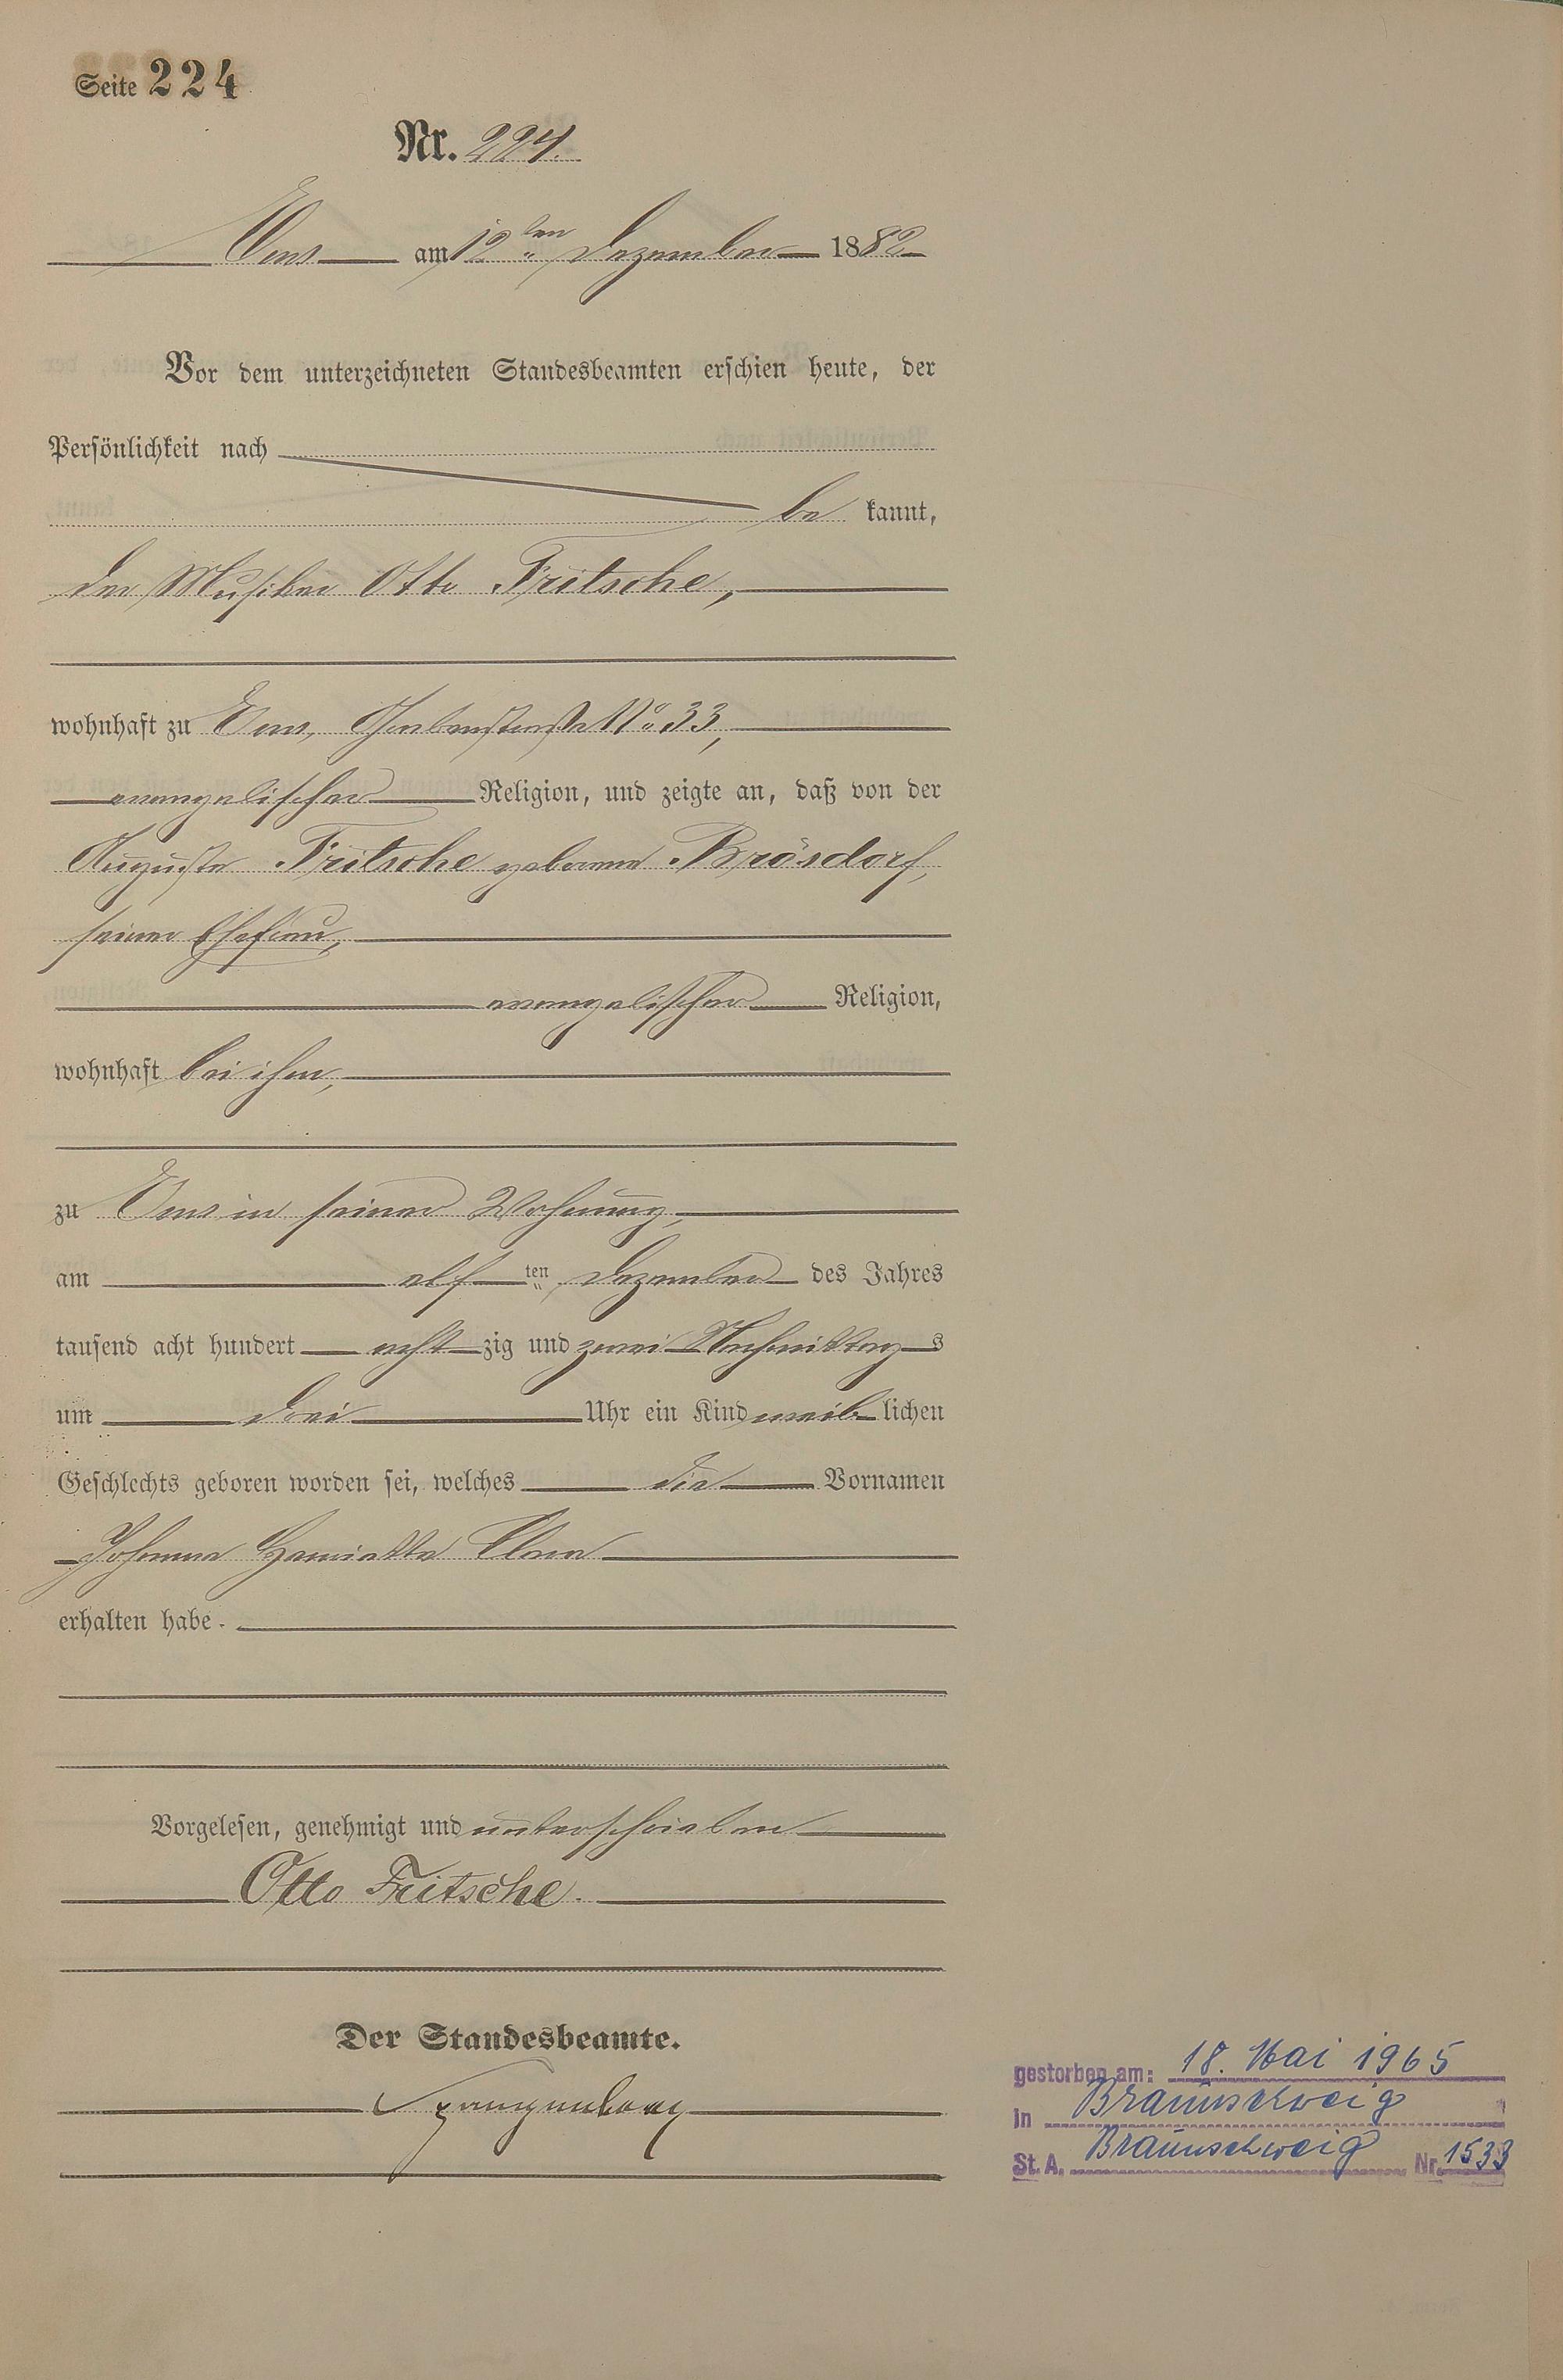 Seite 224
Nr. 224.
Ems am 12ten Dezember 1882
Vor dem unterzeichneten Standesbeamten erschien heute, der
Persönlichkeit nach
be kannt,
der Musiker Otto Fritsche,
wohnhaft zu Ems, No 33,
evangelischer Religion, und zeigte an, daß von der
Auguste Fritsche geborene Brösdorf,
seiner Ehefrau,
evangelischer Religion,
wohnhaft bei ihm,
zu Ems in seiner Wohnung,
am elf ten Dezember des Jahres
tausend acht hundert acht zig und zwei Nachmittag s
um drei Uhr ein Kind weib lichen
Geschlechts geboren worden sei, welches die Vornamen
Johanna Henriette Clara
erhalten habe.
Vorgelesen, genehmigt und unterschrieben
Otto Fritsche.
Der Standesbeamte.
Spangenberg
gestorben am: 18. Mai 1965
in Braunschweig
St. A. Braunschweig Nr. 1533